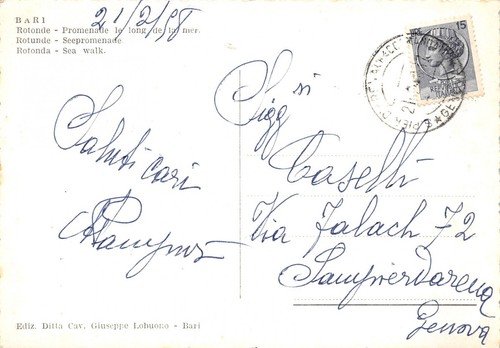 BARI
Rotonde - Promenade le long de la mer.
Rotunde - Seepromenade.
Rotonda - Sea walk.
21/2/58
15
Sigg si
Caselli
Via Jalach 72
Sampierdarena
Genova
Saluti cari
Ediz. Ditta Cav. Giuseppe Lobuono - Bari